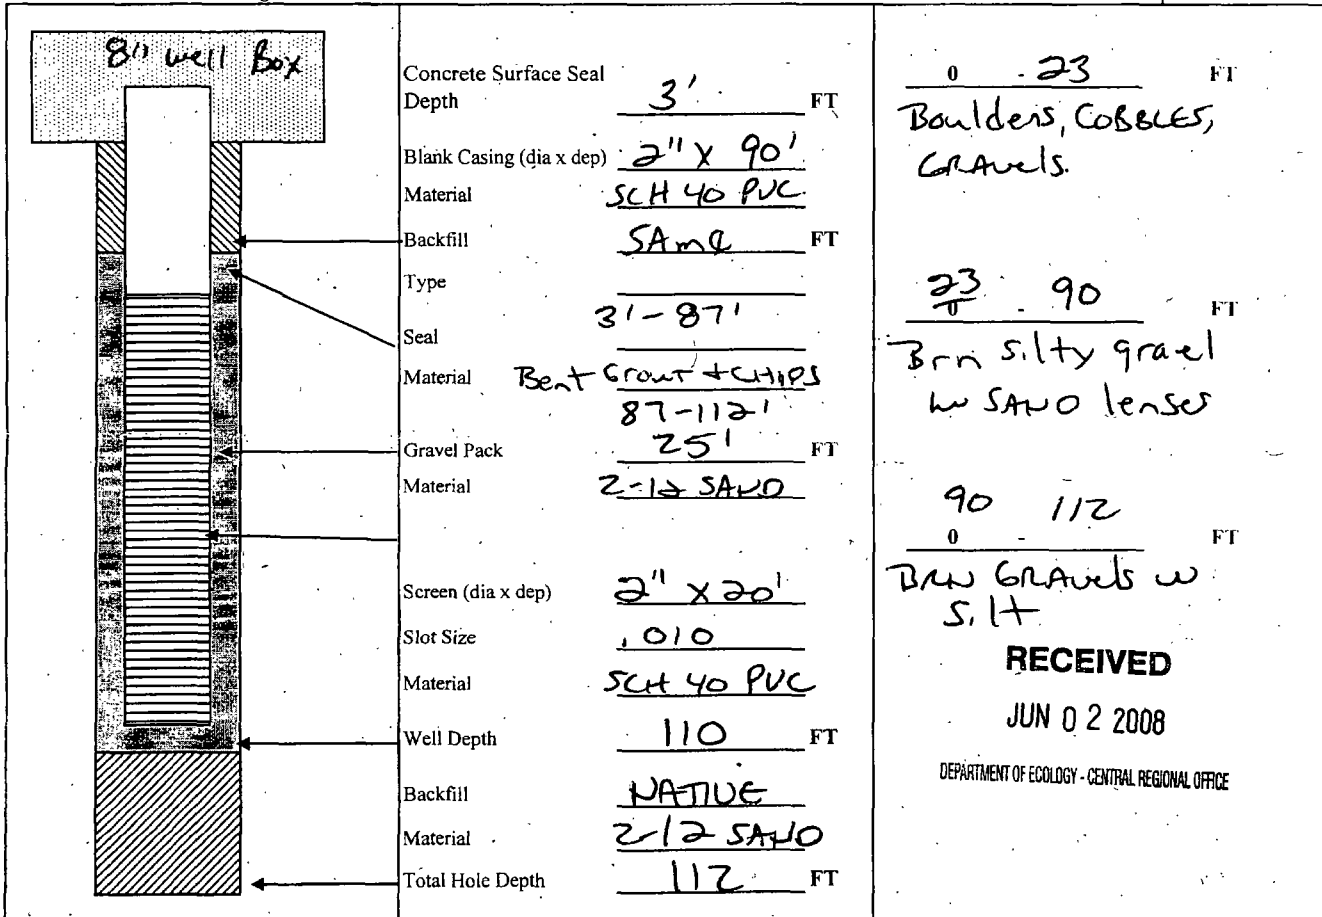 8" well Box
Concrete Surface Seal
Depth 3' FT
Blank Casing (dia x dep) 2" X 90'
Material SCH 40 PVC
Backfill SAme FT
Type
3'-87'
Seal
Material Bent Grout + CHIPS
87-112'
Gravel Pack 25' FT
Material 2-12 SAND
Screen (dia x dep) 2" X 20'
Slot Size .010
Material SCH 40 PVC
Well Depth 110 FT
Backfill NATIVE
Material 2-12 SAND
Total Hole Depth 112 FT
0 - 23 FT
Boulders, COBBLES,
GRAvels.
23
0 - 90 FT
Brn silty gravel
w SAND lenses
90 112
0 - FT
BRN GRAvels w
Silt
RECEIVED
JUN 02 2008
DEPARTMENT OF ECOLOGY - CENTRAL REGIONAL OFFICE